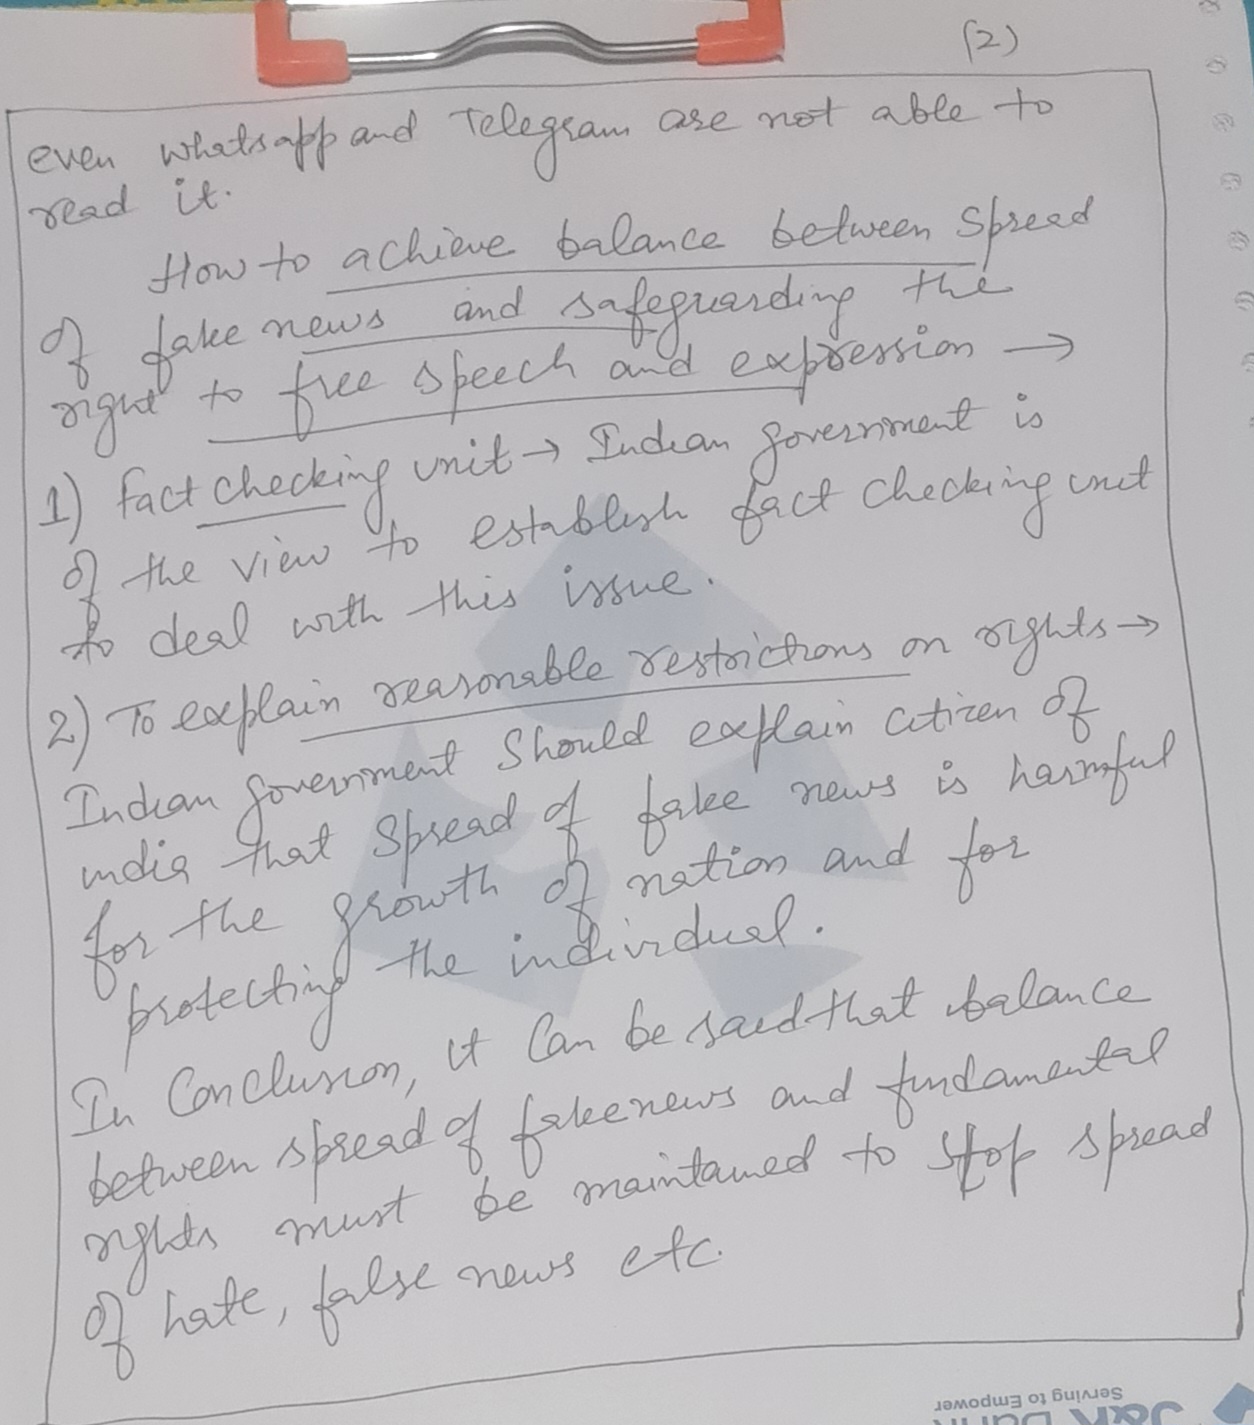 (2)
even whatsapp and Telegram are not able to
read it.
How to achieve balance between spread
of fake news and safeguarding the
right to free speech and expression →
1) fact checking unit → Indian government is
of the view to establish fact checking unit
to deal with this issue.
2) To explain reasonable restrictions on rights →
Indian government should explain citizen of
india that spread of fake news is harmful
for the growth of nation and for
protecting the individual.
In Conclusion, it can be said that balance
between spread of fake news and fundamental
rights must be maintained to stop spread
of hate, false news etc.
Serving to Empower
J&K Bank